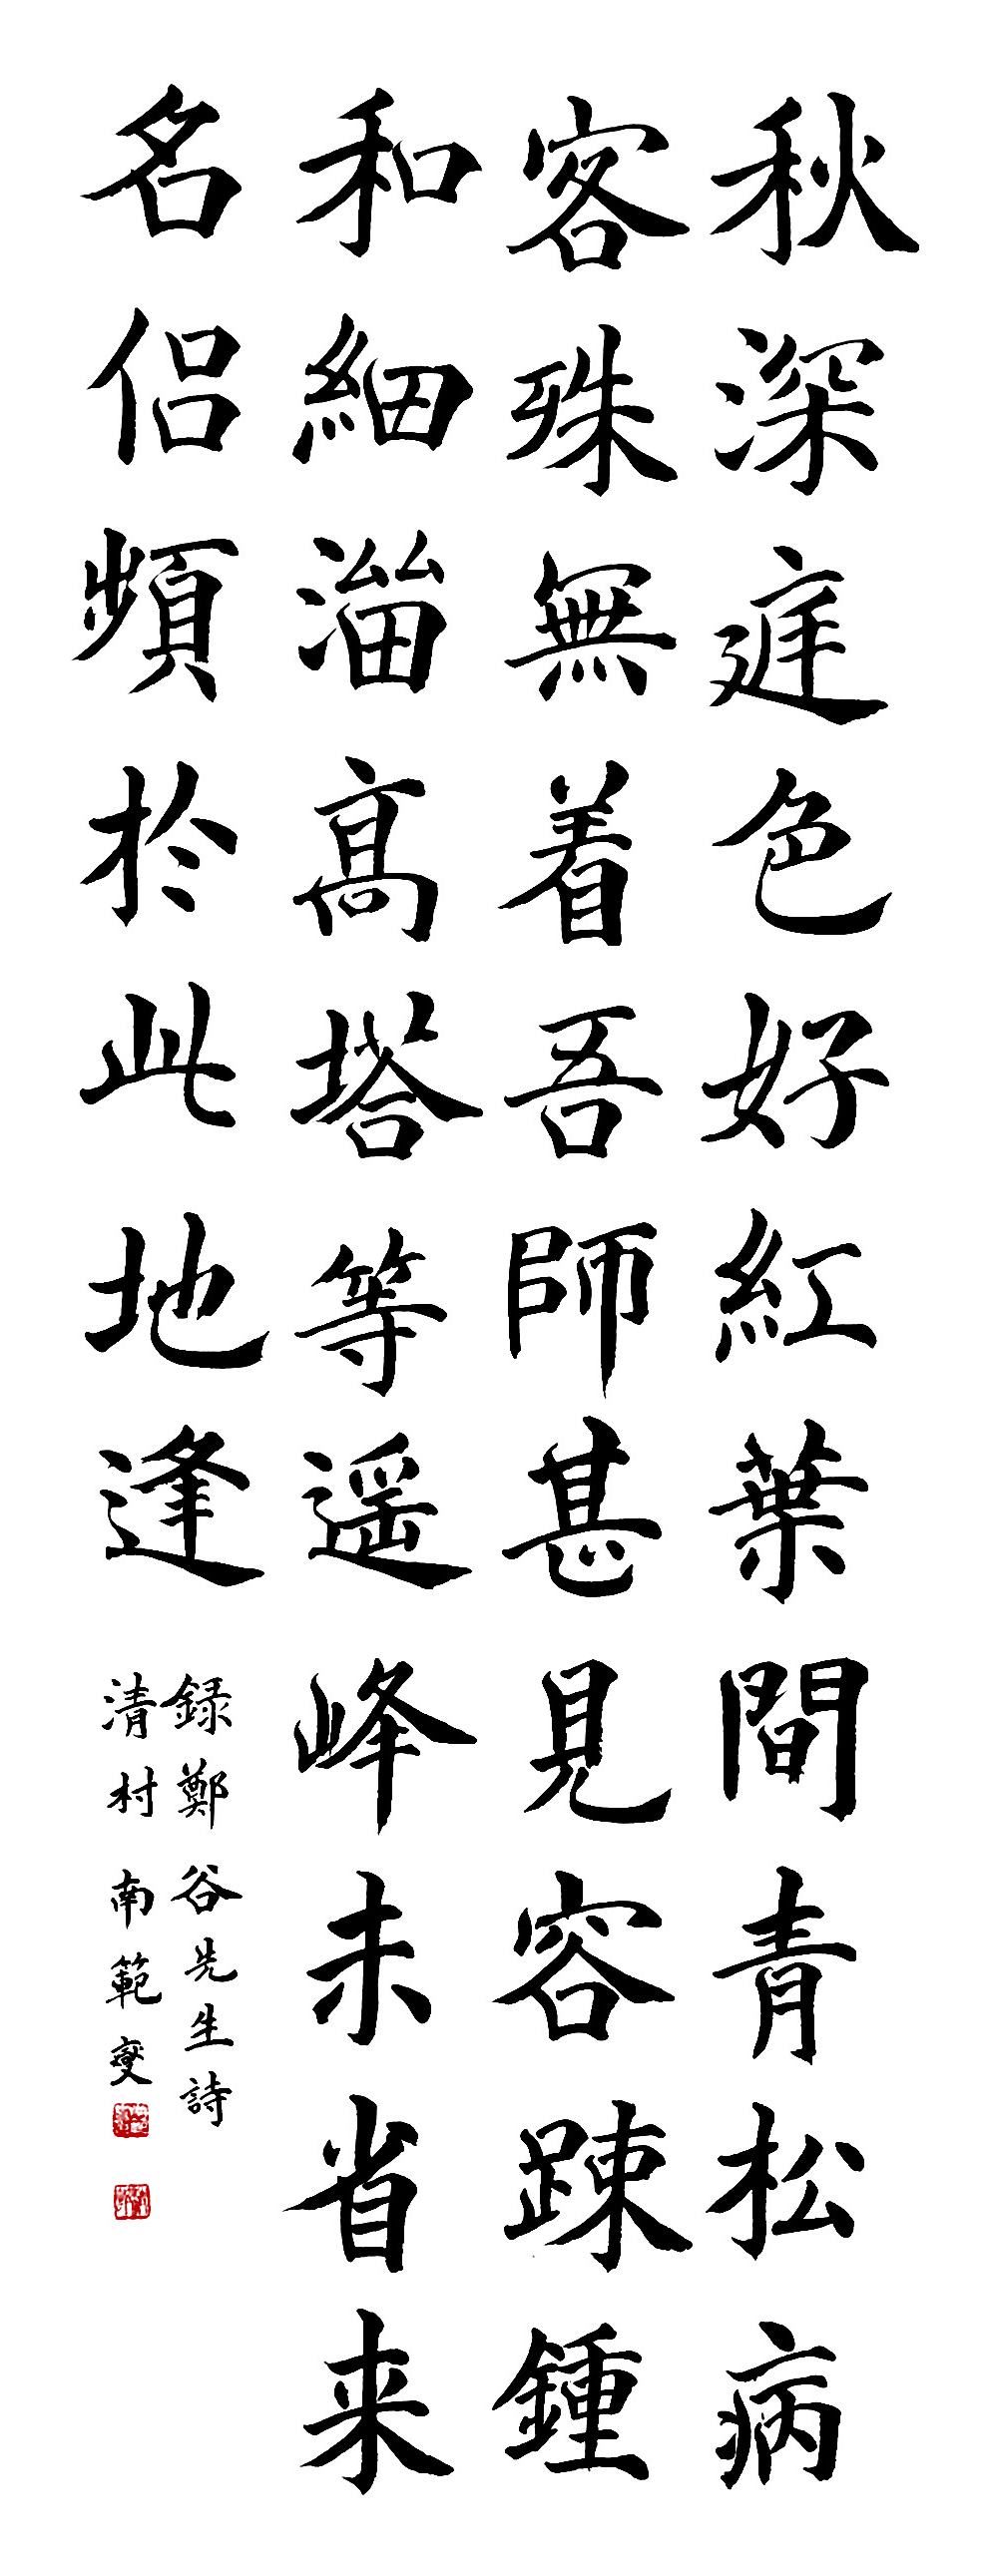 秋深庭色好紅葉間青松病
客殊無着吾師甚見容疎鍾
和細溜高塔等遥峰未省来
名侶頻於此地逢
録鄭谷先生詩
清村 南範燮